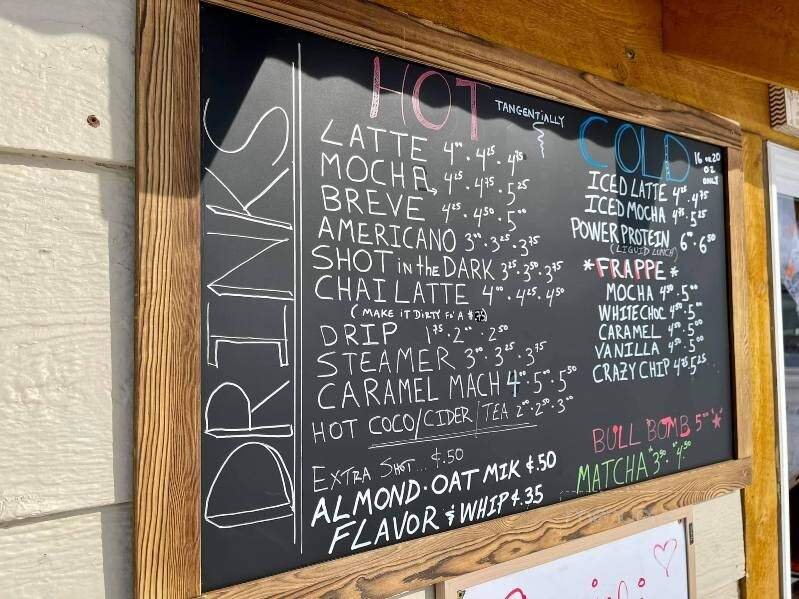 DRINKS
HOT
TANGENTIALLY
LATTE 4⁰⁰ · 4²⁵ · 4⁷⁵
MOCHA 4²⁵ · 4⁷⁵ · 5²⁵
BREVE 4²⁵ · 4⁵⁰ · 5⁰⁰
AMERICANO 3⁰⁰ · 3²⁵ · 3⁷⁵
SHOT in the DARK 3²⁵ · 3⁵⁰ · 3⁷⁵
CHAI LATTE 4⁰⁰ · 4²⁵ · 4⁵⁰
(MAKE IT DIRTY Fo' A $.75)
DRIP 1⁷⁵ · 2⁰⁰ · 2⁵⁰
STEAMER 3⁰⁰ · 3²⁵ · 3⁷⁵
CARAMEL MACH 4⁰⁰ · 5⁰⁰ · 5⁵⁰
HOT COCO/CIDER/TEA 2⁰⁰ · 2⁵⁰ · 3⁰⁰
EXTRA SHOT... $.50
ALMOND · OAT MIK $.50
FLAVOR & WHIP $.35
COLD
16 or 20
OZ
ONLY
ICED LATTE 4²⁵ · 4⁷⁵
ICED MOCHA 4⁷⁵ · 5²⁵
POWER PROTEIN 6⁰⁰ · 6⁵⁰
(LIQUID LUNCH)
*FRAPPE*
MOCHA 4⁵⁰ · 5⁰⁰
WHITE CHOC 4⁵⁰ · 5⁰⁰
CARAMEL 4⁵⁰ · 5⁰⁰
VANILLA 4⁵⁰ · 5⁰⁰
CRAZY CHIP 4⁷⁵ · 5²⁵
BULL BOMB 5⁰⁰ *
MATCHA 3⁵⁰ · 4⁵⁰